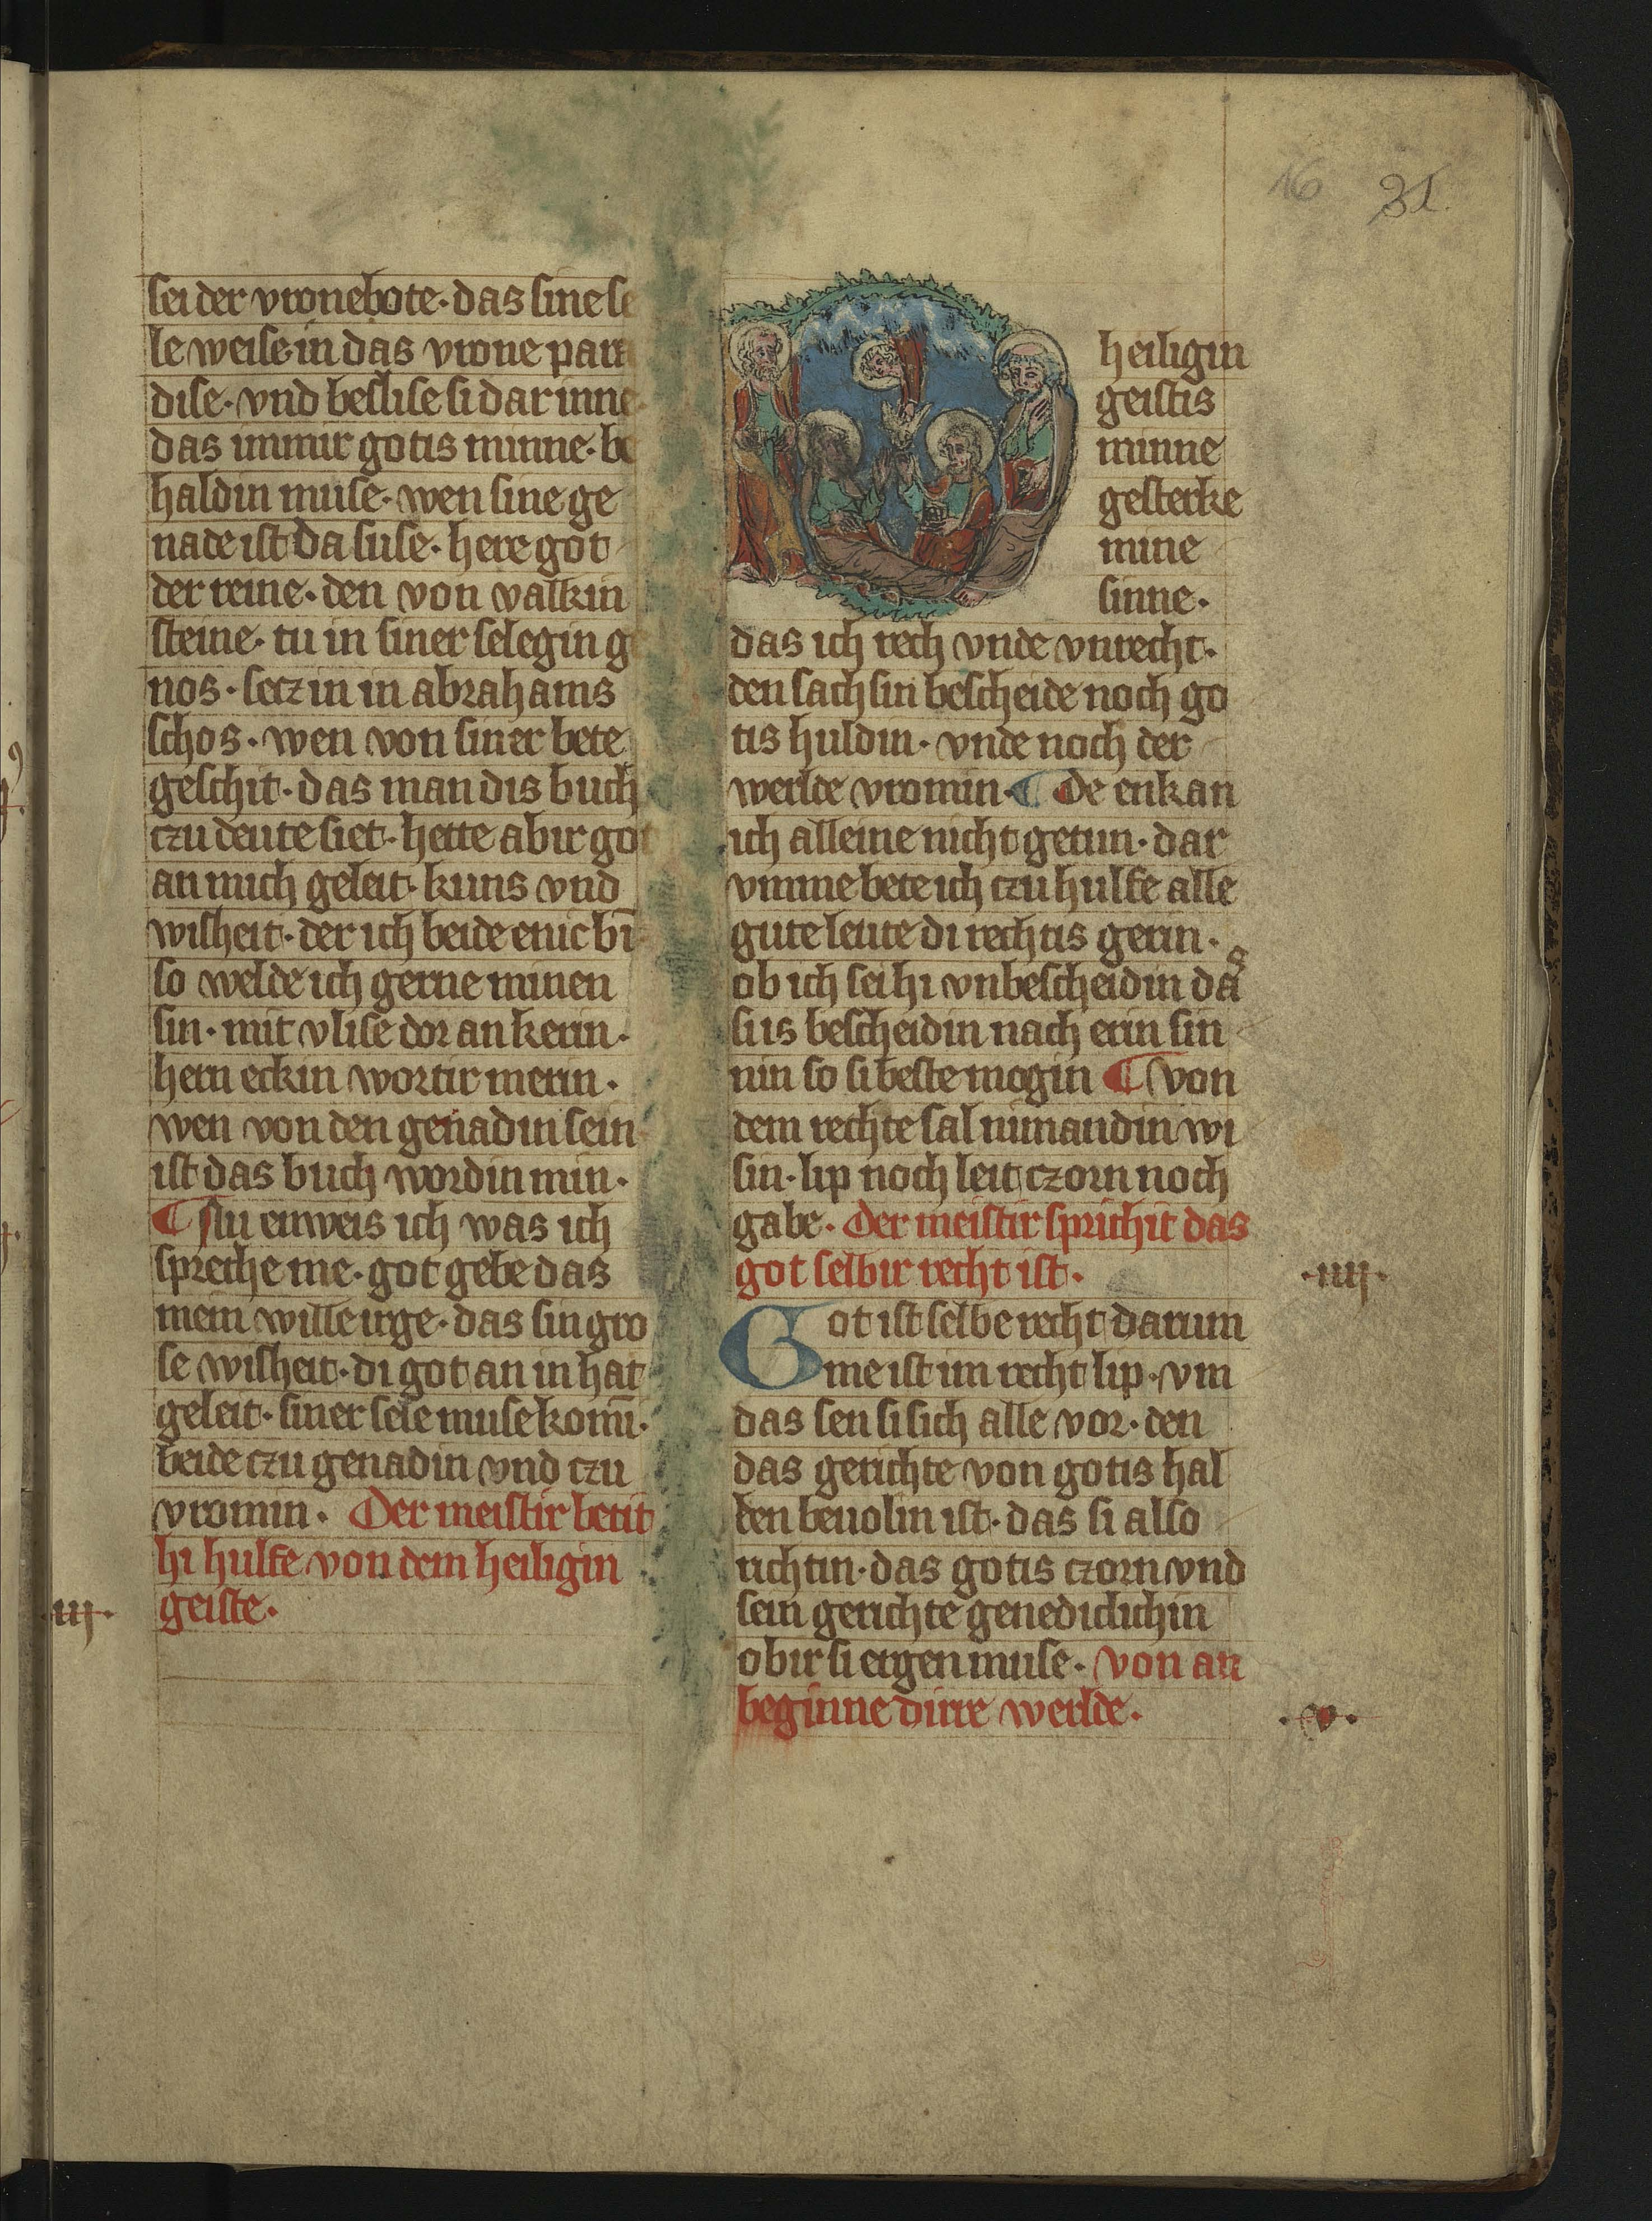 16 31.
sei der vronebote · das sine se
le weise in das vrone para
dise · vnd beslise si dar inne ·
das immir gotis minne · be
haldin muse · wen sine ge
nade ist da suse · here got
der reine · den von valkin
steine · tu in siner selegin ge
nos · secz in in abrahams
schos · wen von siner bete
geschit · das man dis buch
czu deute siet · hette abir got
an mich geleit · kuns vnd
wisheit · der ich beide enic bī
so welde ich gerne minen
sin · mit vlise dor an kerin ·
hern eckin wortir merin ·
wen von den genadin sein
ist das buch wordin min ·
¶ Nu enweis ich was ich
spreche me · got gebe das
mein wille irge · das sin gro
se wisheit · di got an in hat
geleit · siner sele muse komī ·
beide czu genadin vnd czu
vromin · Der meistir betit
hi hulfe von dem heiligin
·iij· geiste ·
heiligin
geistis
minne
gesterke
mine
sinne ·
das ich rech vnde vnrecht ·
den sachsin bescheide noch go
tis huldin · vnde noch der
werlde vromin · ¶ De enkan
ich alleine nicht getun · dar
vmme bete ich czu hulfe alle
gute leute di rechtis gerin ·
ob ich sei hi vnbescheidin das
si is bescheidin nach erin sin
nin so si beste mogin ¶ von
dem rechte sal nimandin wi
sin · lip noch leit czorn noch
gabe · Der meistir sprichit das
got selbir recht ist · ·iiij·
Got ist selbe recht darum
me ist im recht lip · vm
das sen si sich alle vor · den
das gerichte von gotis hal
ben beuolin ist · das si also
richtin · das gotis czorn vnd
sein gerichte genediclichin
obir si ergen muse · von an
beginne dirre werlde · ·v·